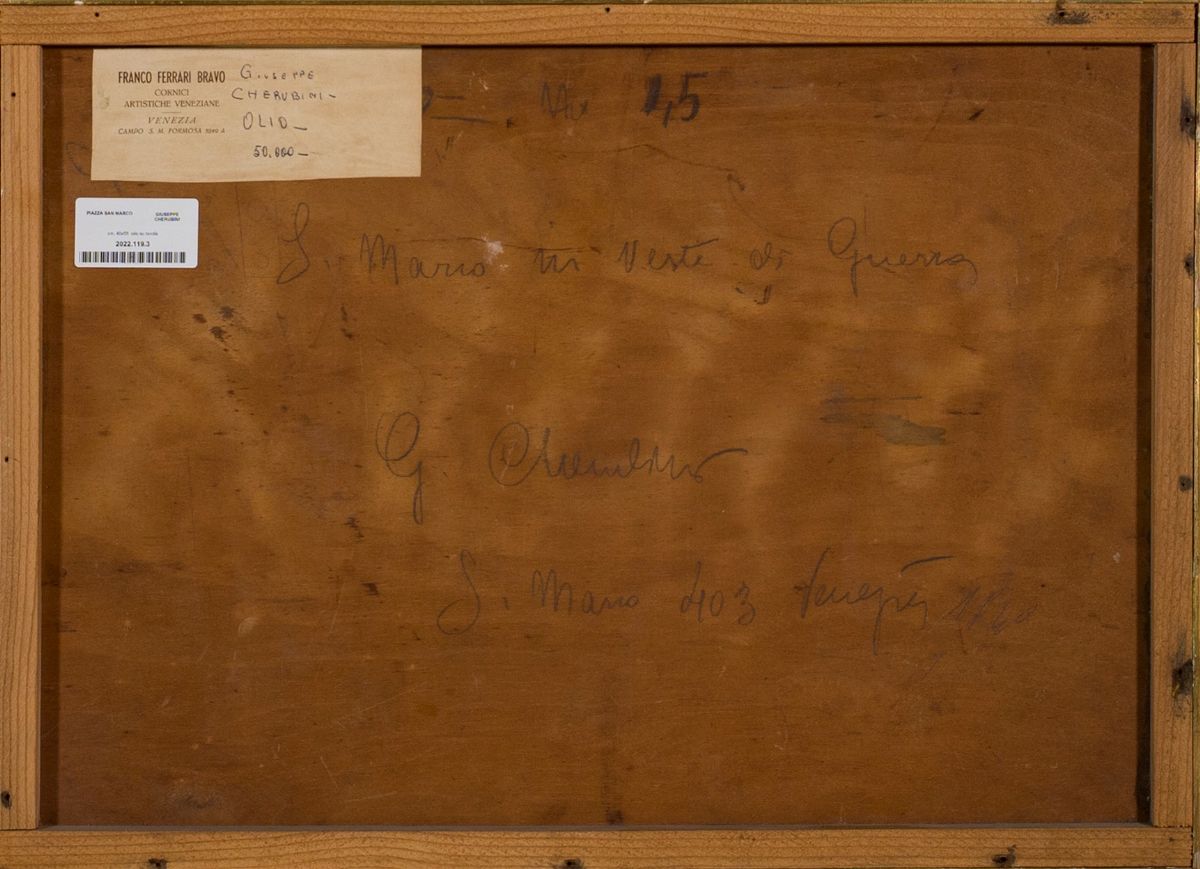 FRANCO FERRARI BRAVO
CORNICI
ARTISTICHE VENEZIANE
VENEZIA
CAMPO S. M. FORMOSA
GIUSEPPE
CHERUBINI-
OLIO-
50.000-
1,5
PIAZZA SAN MARCO
GIUSEPPE
CHERUBINI
2022.119.3
S. Marco in Veste di Guerra
G. Cherubini
S. Marco 403 Venezia